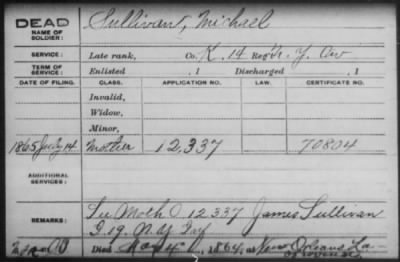 DEAD
NAME OF SOLDIER:
Sullivant, Michael
SERVICE:
Late rank, Co. K, 14 Reg't N. Y. Cav
TERM OF SERVICE:
Enlisted , 1 Discharged , 1
DATE OF FILING. CLASS. APPLICATION NO. LAW. CERTIFICATE NO.
Invalid,
Widow,
Minor,
1865 July 14 Mother 12,337 70804
ADDITIONAL SERVICES:
REMARKS:
See Moth O 12 337 James Sullivan
19. N.Y.
Died May 4, 1864, at New Orleans La